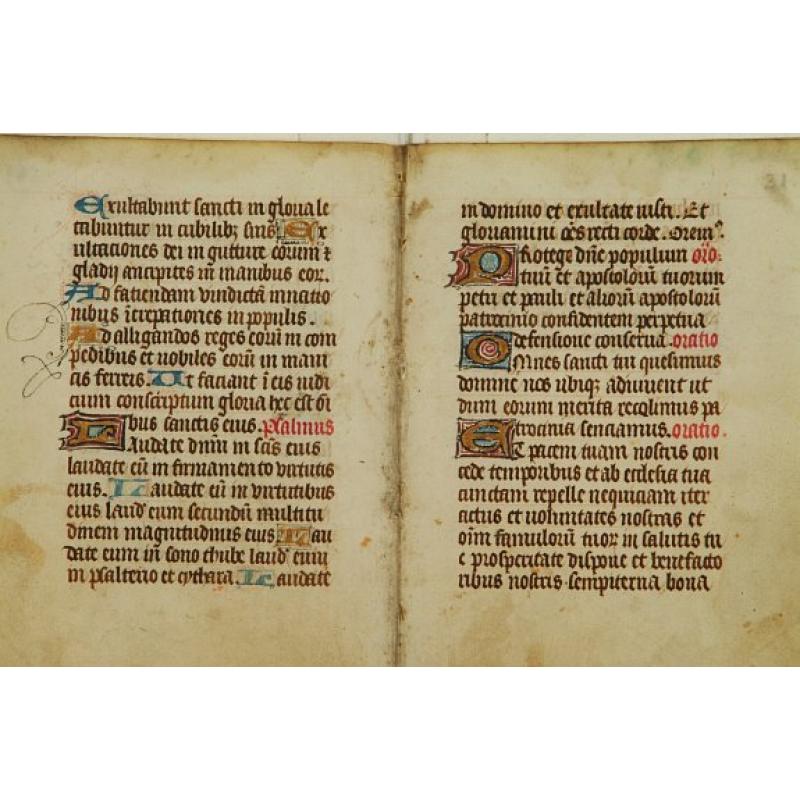 Exultabunt sancti in gloria le
tabuntur in cubilibꝫ suis Ex
ultaciones dei in gutture eorum ⁊
gladii ancipites in manibus eor.
Ad fatiendam vindictā in natio
nibus īcrepationes in populis.
Ad alligandos reges eorū in com
pedibus et nobiles eorū in mani
cis ferreis. Ut faciant ī eis iudi
cium conscriptum gloria hec est oī
bus sanctis eius. psalmus
Laudate dnm̄ in scīs eius
laudate eū in firmamento virtutis
eius. Laudate eū in virtutibus
eius laud eum secundū multitu
dinem magnitudinus eius Lau
date eum in sono thube laud eum
in psalterio et cythara. Laudate
31
in domino et exultate iusti. Et
gloriamini oēs recti corde. Orem⁹.
Protege dn̄e populum orō.
tuū et apostolorū tuorum
petri et pauli et aliorū apostolorū
patrocinio confidentem perpetua
defensione conserua. oratio
Omnes sancti tui quesimus
domine nos ubiqꝫ adiuuent ut
dum eorum merita recolimus pa
trocinia senciamus. oratio.
Et pacem tuam nostris con
cede temporibus et ab ecclesia tua
cunctam repelle nequiciam iter
actus et uoluntates nostras et
oīm famulorū tuor in salutis tu
e prosperitate dispone et benefacto
ribus nostris sempiterna bona